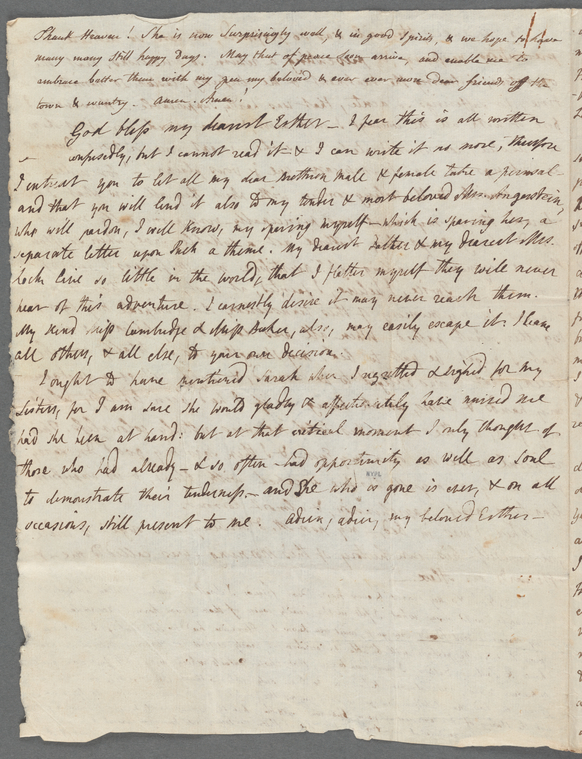 Thank Heaven! She is now surprisingly well, & in good spirits, & we hope to have
many many still happy days. May that of peace soon arrive, and enable me to
embrace better than with my pen my beloved & ever ever more dear friends of the
town & country. Amen. Amen!
God bless my dearest Esther — I fear this is all written
confusedly, but I cannot read it — & I can write it no more, therefore
I intreat you to let all my dear Brethren male & female take a perusal —
and that you will lend it also to my tender & most beloved Mrs. Angerstein,
who will pardon, I well know, my sparing myself — which is sparing her, a
separate letter upon such a theme. My dearest Father & my dearest Mrs.
Lock live so little in the world, that I flatter myself they will never
hear of this adventure. I earnestly desire it may never reach them.
My kind Miss Cambridge & Miss Baker, also, may easily escape it. I leave
all others, & all else, to your own decision.
I ought to have mentioned Sarah when I regretted & sighed for my
Sisters, for I am sure she would gladly & affectionately have nursed me
had she been at hand: but at that critical moment I only thought of
those who had already — & so often — had opportunity as well as soul
to demonstrate their tenderness — and She who is gone is ever, & on all
occasions, still present to me. Adieu, adieu, my beloved Esther —